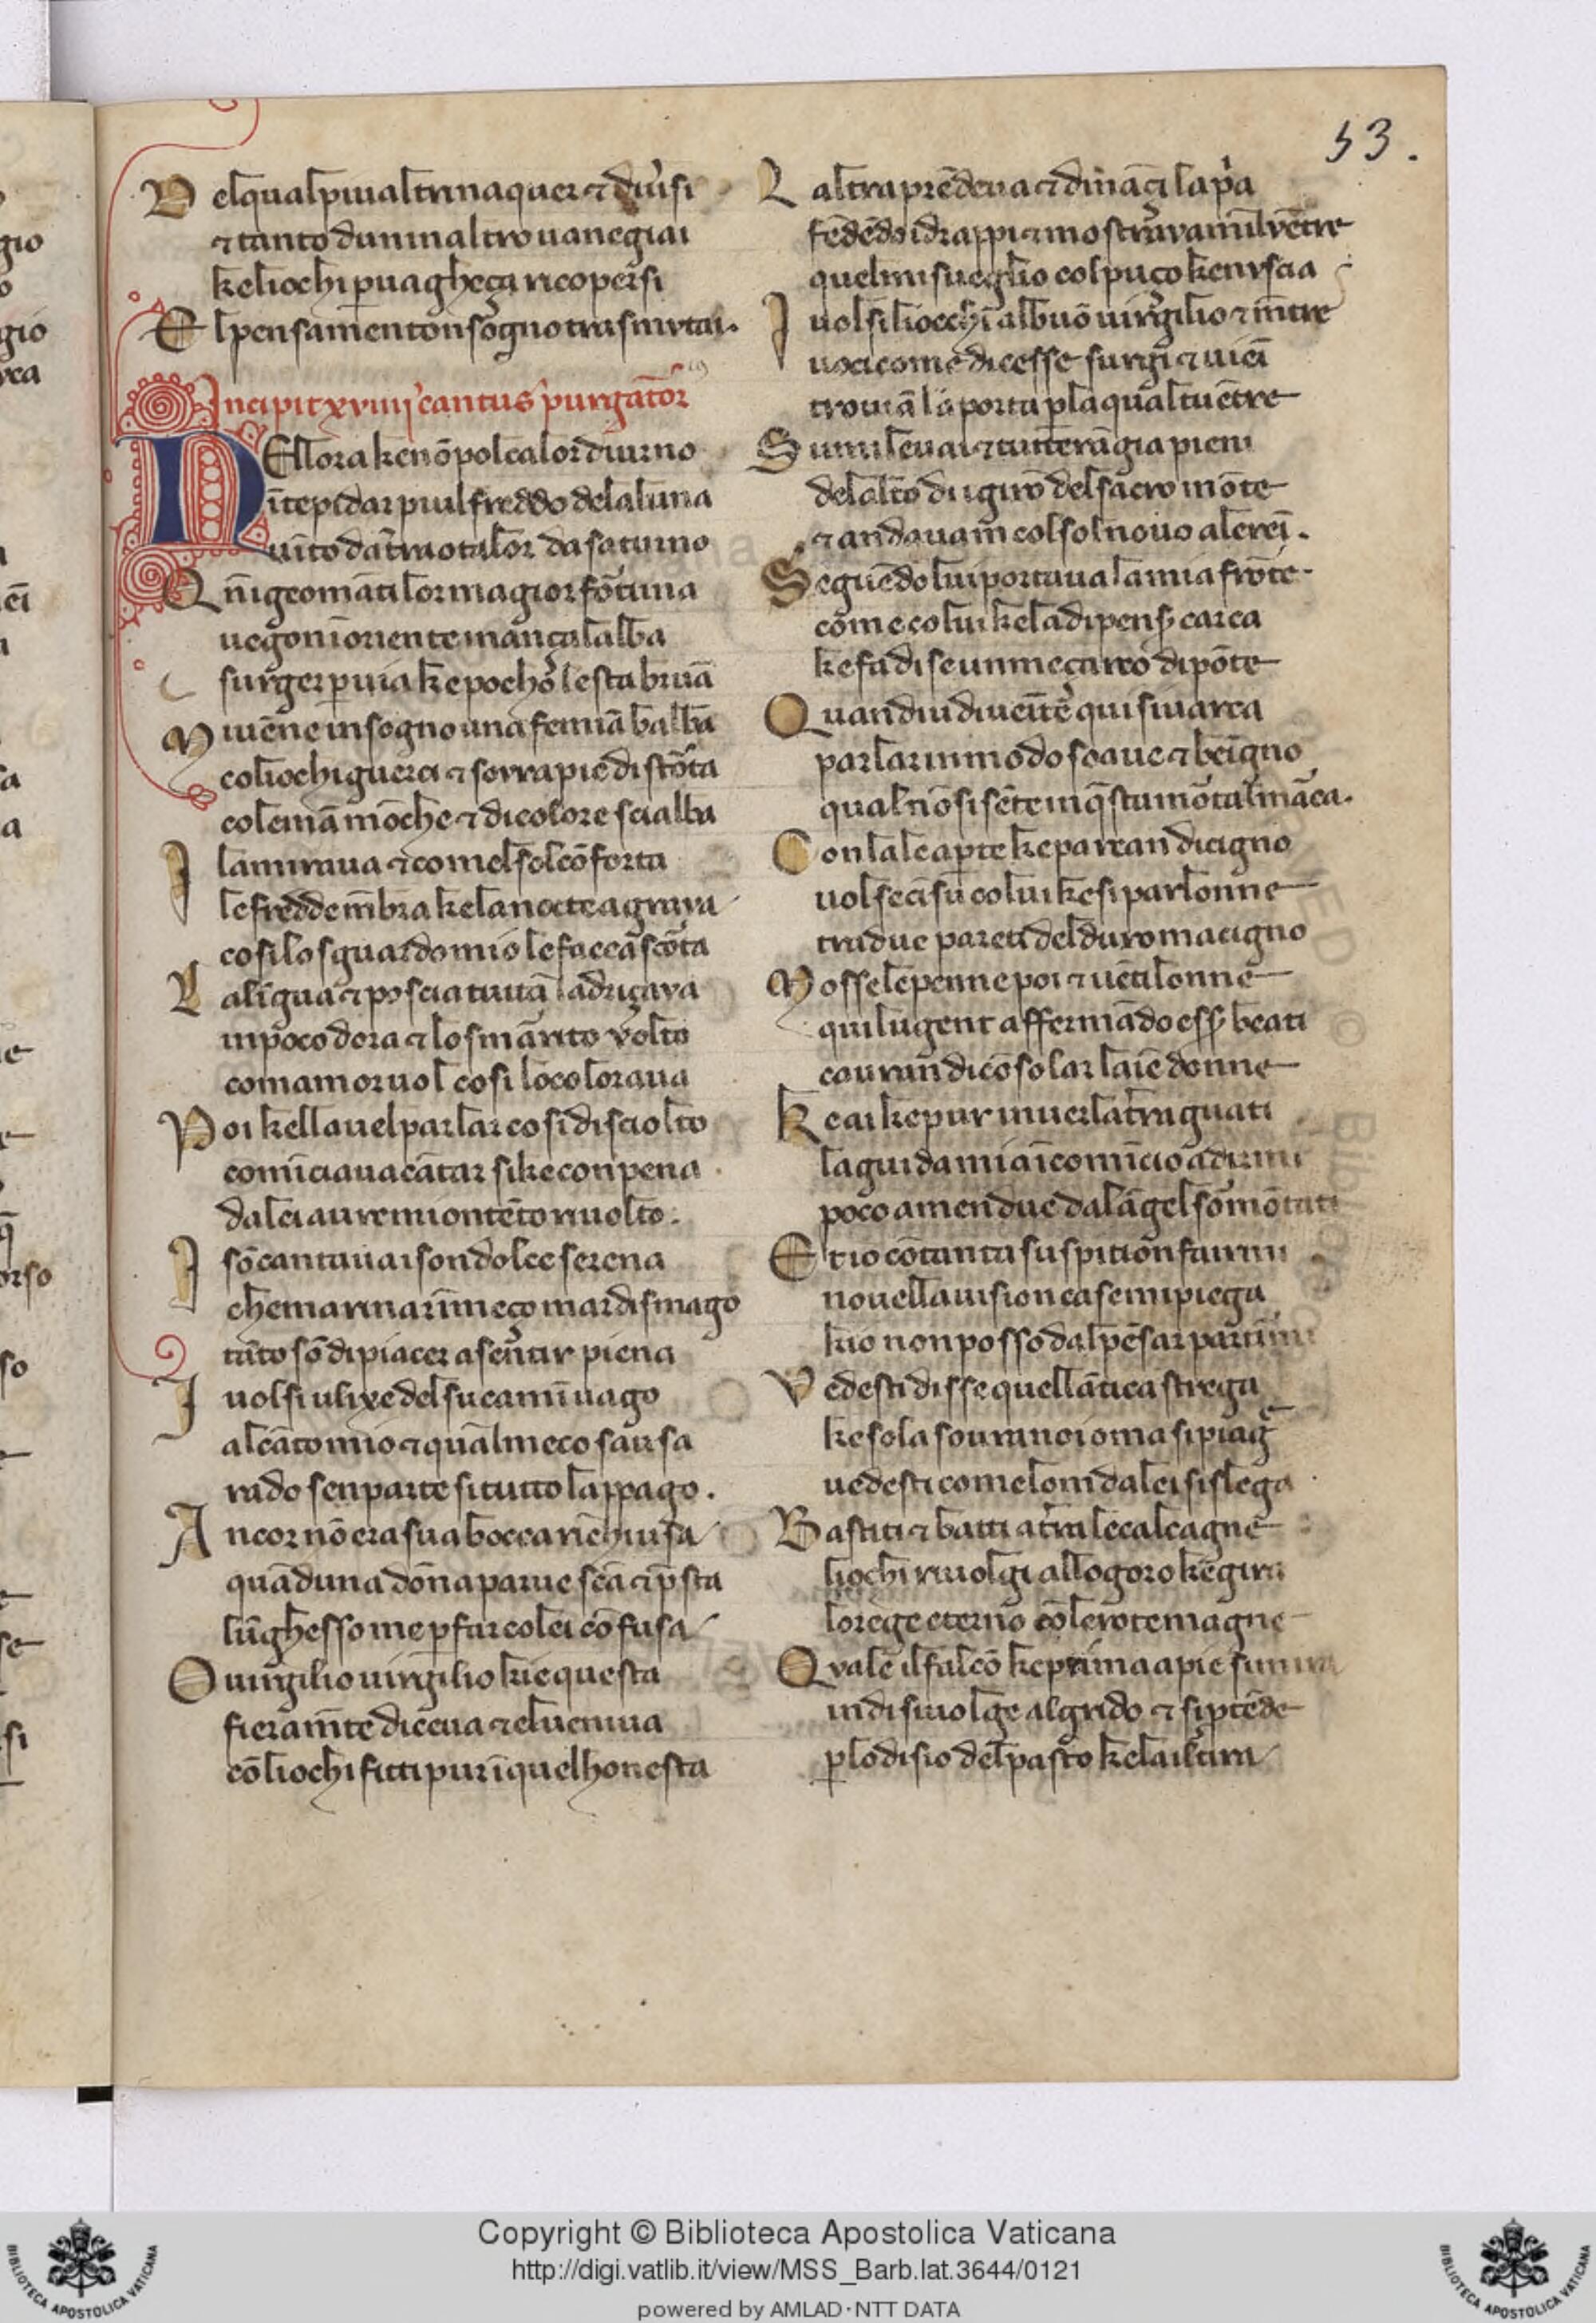 53.
D elqual piu altri naquer ⁊ diũsi
⁊ tanto dun in altro uanegiai
ke li ochi p uagheça ricopersi
E l pensamento in sogno trasmutai.
Incipit xviiij cantus purgator̃
NEllora ke nõ po l calor diurno
ĩtepidar piu l freddo de la luna
uĩto da t̃ra o talor da saturno
Q n̄ i geomãti lor magior fõtuna
uegono ĩ oriente inãnçi a lalba
surger p uia ke pocho le sta bruã
M i uẽne in sogno una femiã balba
co li ochi guerci ⁊ sorra pie distõta
co le mã mõche ⁊ di colore scialba
I la miraua ⁊ come l sol cõforta
le fredde mẽbra ke la nocte agraua
cosi lo sguardo mio le facea scõta
L a lĩgua ⁊ poscia tutta la driçaua
in poco dora ⁊ lo smãrito uolto
com amor uol cosi lo coloraua
P oi kellauel parlar cosi disciolto
comĩciaua a cãtar si ke con pena
da lei aurei mio ntẽto riuolto.
I sõ cantaua i son dolce serena
che marinari ĩ meço mar dismago
tãto sõ di piacer a sentir piena
I uolsi ulixe del su camĩ uago
al cãto mio ⁊ qual meco sausa
rado sen parte si tutto lappago.
A ncor nõ era sua bocca richiusa
quãd una dõna parue scã ⁊ p̃sta
lũghesso me p far colei cõfusa
O uirgilio uirgilio kie questa
fieram̃te diceua ⁊ el ueniua
cõ li ochi fitti pur ĩ quel honesta
L altra prẽdeua ⁊ dinãçi lap̃a
fẽdẽdo i drappi ⁊ mostrauamil uẽtre
quel mi sueglio col puço ke nuscia
I uolsi li occhi al buõ uirgilio ⁊ m̃tre
uoci come dicesse surgi ⁊ uiei
trouiã la porta p la qual tu ẽtre
S u mi leuai ⁊ tutti erã gia pieni
de lalto di i girõ del sacro mõte
⁊ andauam col sol nouo a le rei.
S eguẽdo lui portaua la mia frõte
come colui ke la di pens̃ carca
ke fa di se un meço arco di põte
Q uandiu diuẽite qui si uarca
parlar in modo soaue ⁊ benigno
qual nõ si sẽte in q̃sta mõtal mãca.
C on lale apte ke parean di cigno
uolseci sũ colui ke si parlonne
tra due pareti del duro macigno
M osse le penne poi ⁊ uẽtilonne
qui lugent affermãdo ess̃ beati
cauran di cõsolar laĩe donne
K e ai ke pur inuer la t̃ra guati
la guida mia ĩcomĩcio a dirmi
poco amendue da lãgel sormõtati
E t io cõ tanta suspition fa irmi
nouella uision ca se mi piega
kio non posso dal pẽsar partirmi
V edesti disse quellãtica strega
ke sola soura noi oma si piãg̃e
uedesti come lom da lei si slega
B astiti ⁊ batti a t̃ra le calcagne
li ochi riuolgi al logoro ke gira
lo rege eterno cõ le rote magne
Q uale il falcõ ke prima a pie si mira
indi si uolge al grido ⁊ si ptẽde
p lo disio del pasto ke la il tira
Copyright © Biblioteca Apostolica Vaticana
http://digi.vatlib.it/view/MSS_Barb.lat.3644/0121
powered by AMLAD·NTT DATA
BIBLIOTECA APOSTOLICA VATICANA
BIBLIOTECA APOSTOLICA VATICANA